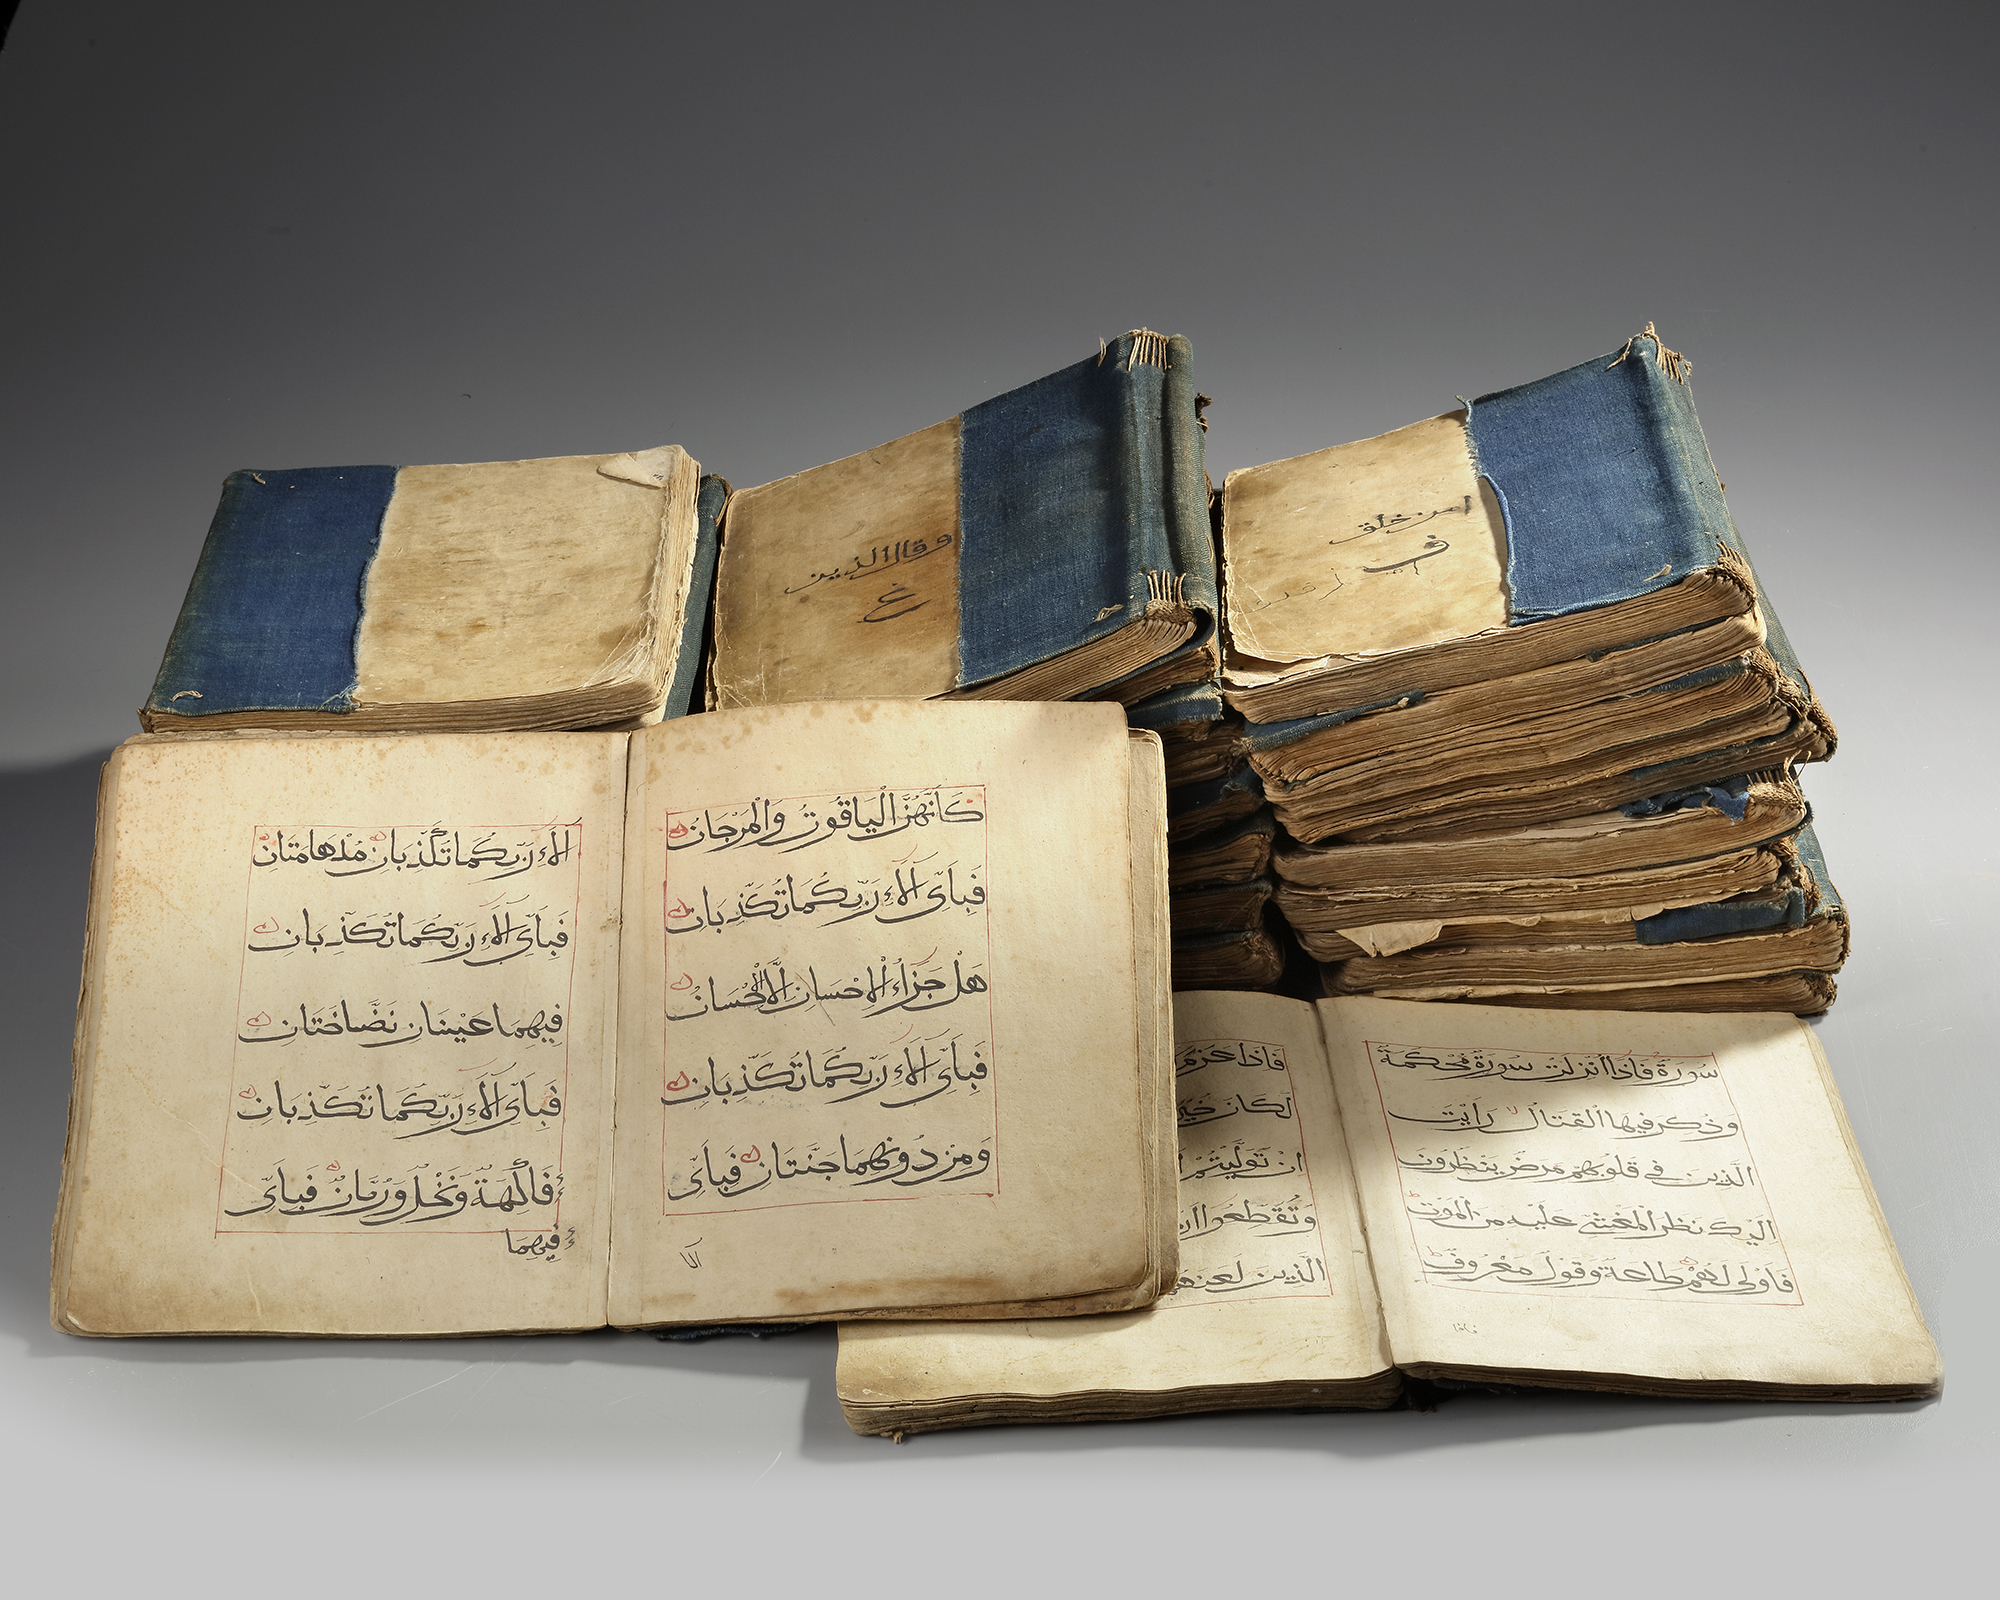 وقال الذين
غ
امن خلق
ف
كَأَنَّهُنَّ الْيَاقُوتُ وَالْمَرْجَانُ
فَبِأَيِّ آلَاءِ رَبِّكُمَا تُكَذِّبَانِ
هَلْ جَزَاءُ الْاِحْسَانِ اِلَّا الْاِحْسَانُ
فَبِأَيِّ آلَاءِ رَبِّكُمَا تُكَذِّبَانِ
وَمِنْ دُونِهِمَا جَنَّتَانِ فَبِأَيِّ
آلا
آلَاءِ رَبِّكُمَا تُكَذِّبَانِ مُدْهَامَّتَانِ
فَبِأَيِّ آلَاءِ رَبِّكُمَا تُكَذِّبَانِ
فِيهِمَا عَيْنَانِ نَضَّاخَتَانِ
فَبِأَيِّ آلَاءِ رَبِّكُمَا تُكَذِّبَانِ
فَاكِهَةٌ وَنَخْلٌ وَرُمَّانٌ فَبِأَيِّ
فِيهِمَا
سُورَةٌ فَاِذَا اُنْزِلَتْ سُورَةٌ مُحْكَمَةٌ
وَذُكِرَ فِيهَا الْقِتَالُ رَاَيْتَ
الَّذِينَ فِي قُلُوبِهِمْ مَرَضٌ يَنْظُرُونَ
اِلَيْكَ نَظَرَ الْمَغْشِيِّ عَلَيْهِ مِنَ الْمَوْتِ
فَاَوْلَى لَهُمْ طَاعَةٌ وَقَوْلٌ مَعْرُوفٌ
فاذا
فَاِذَا عَزَمَ
لَكَانَ خَيْرًا
اِنْ تَوَلَّيْتُمْ
وَتُقَطِّعُوا
الَّذِينَ لَعَنَهُمُ